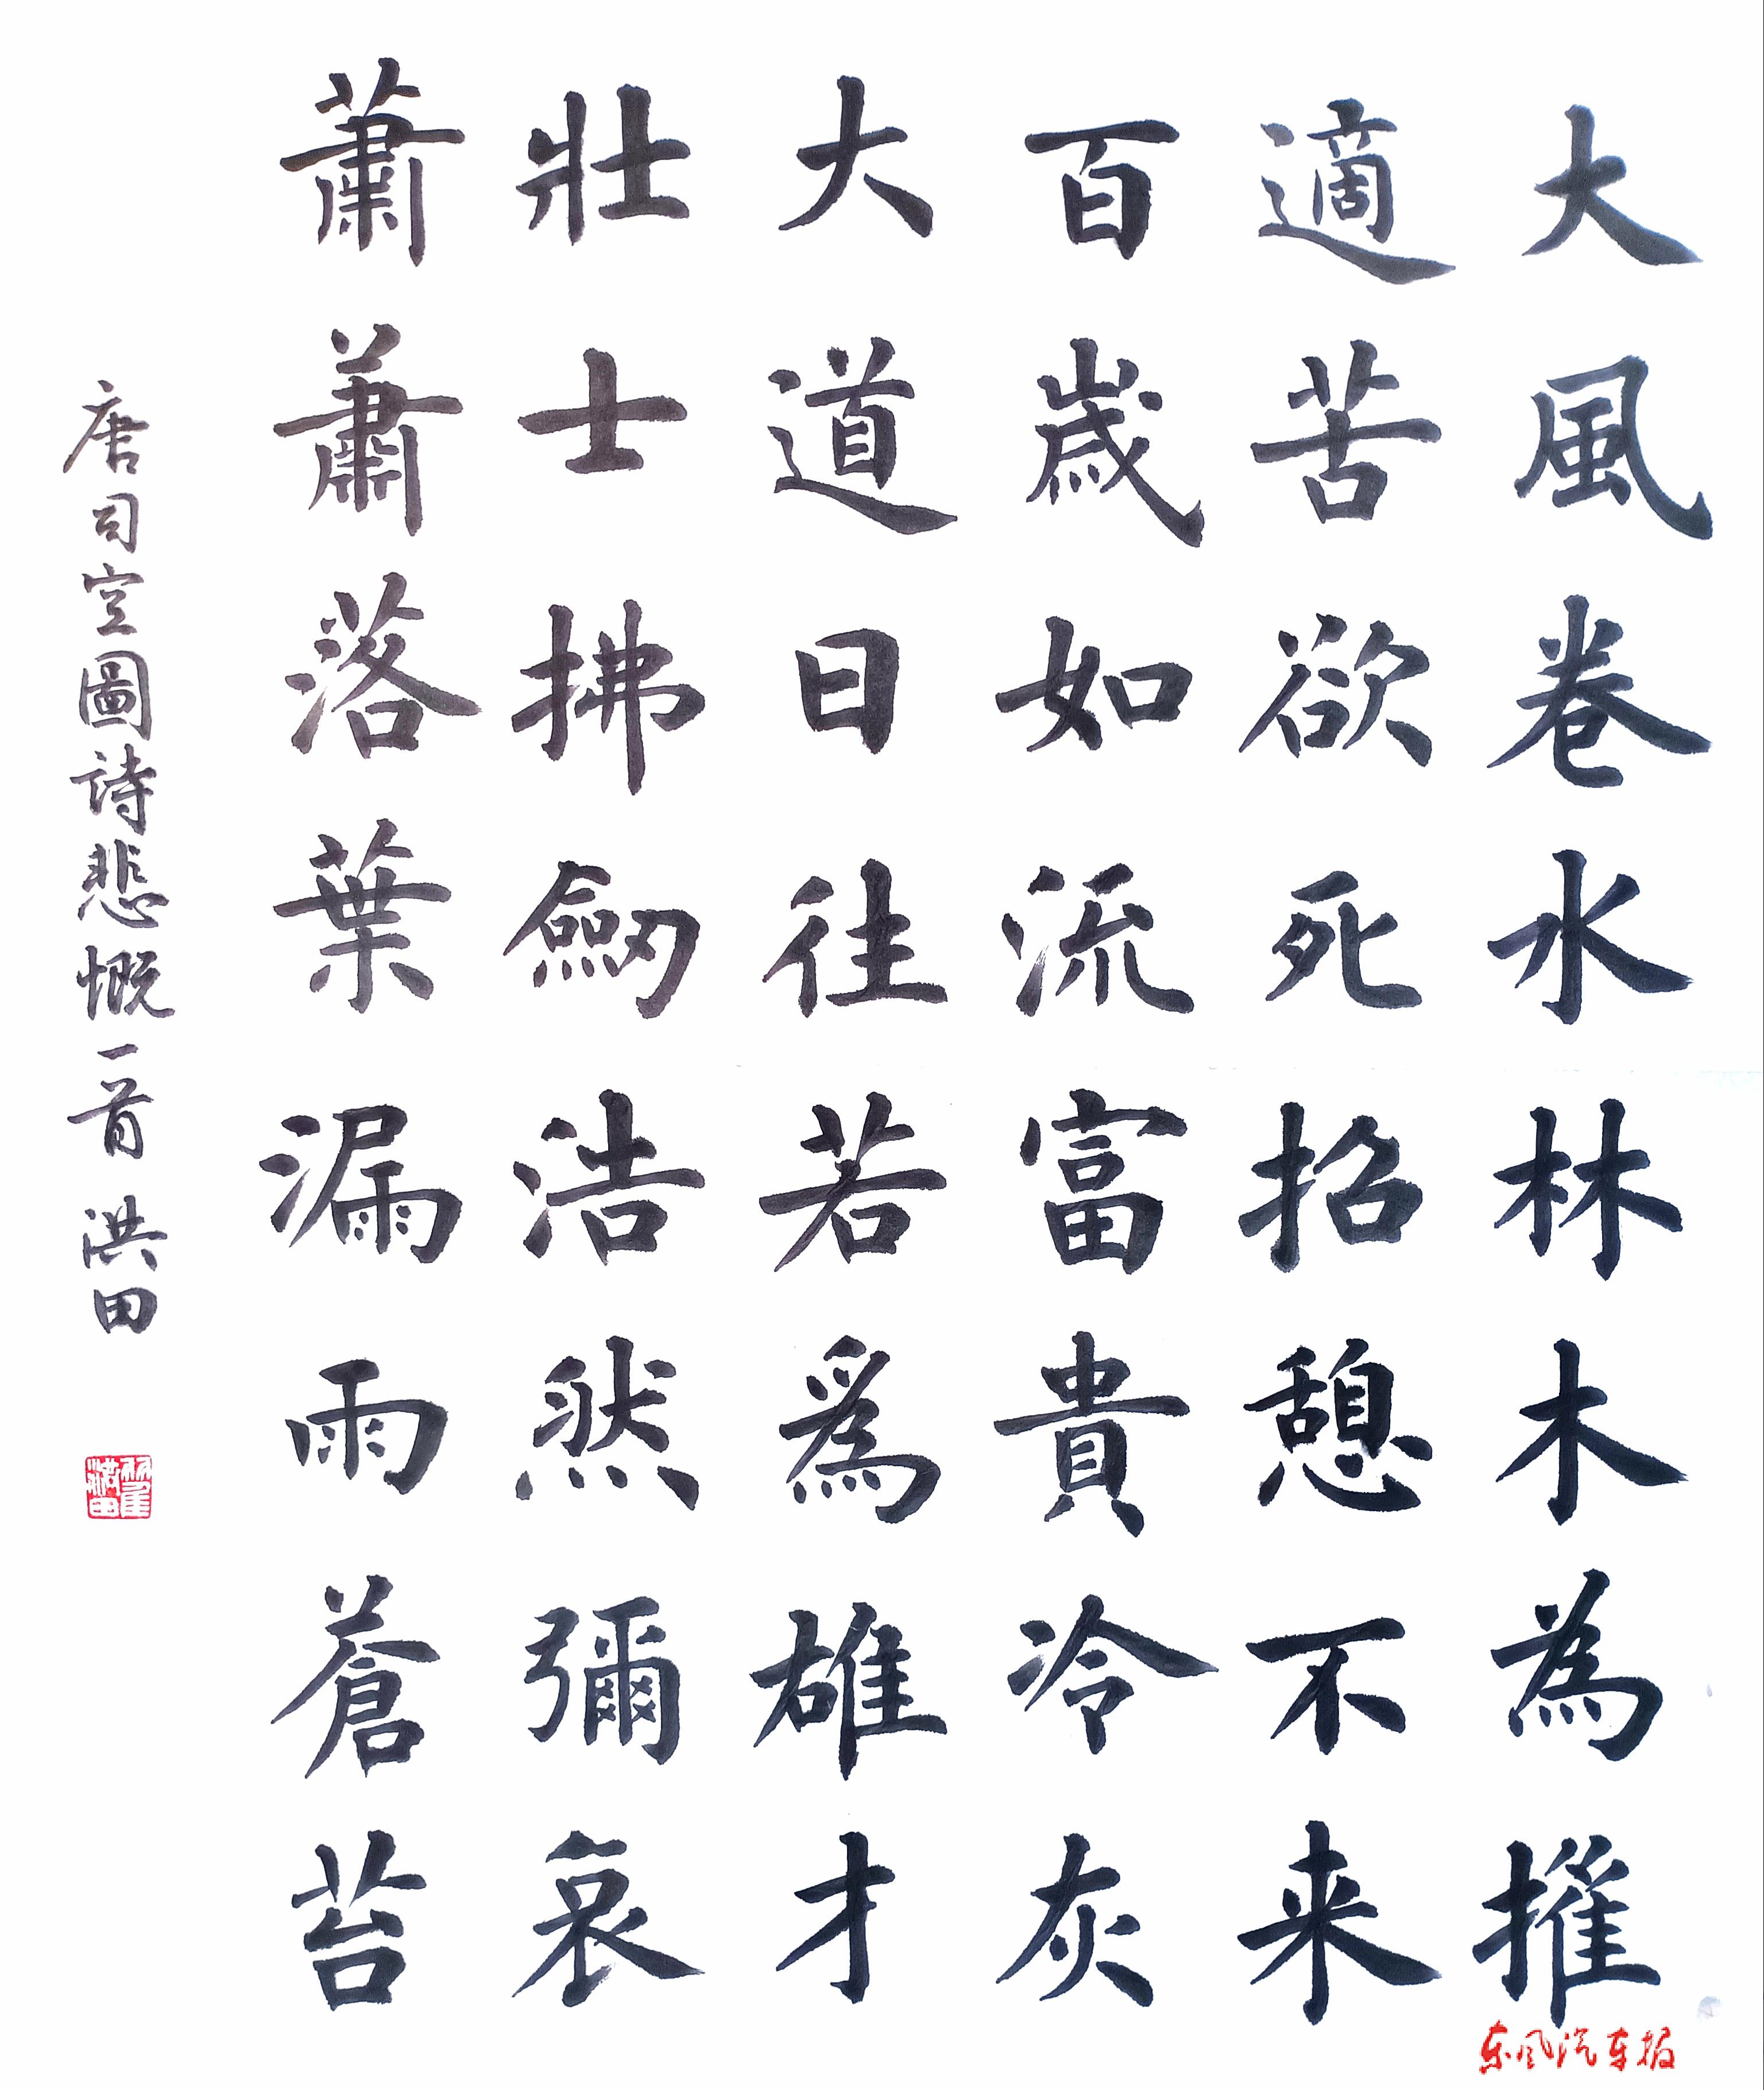 大風卷水林木為摧
適苦欲死招憩不来
百歲如流富貴冷灰
大道日往若爲雄才
壯士拂劒浩然彌哀
蕭蕭落葉漏雨蒼苔
唐司空圖詩悲慨一首 洪田
东风汽车报